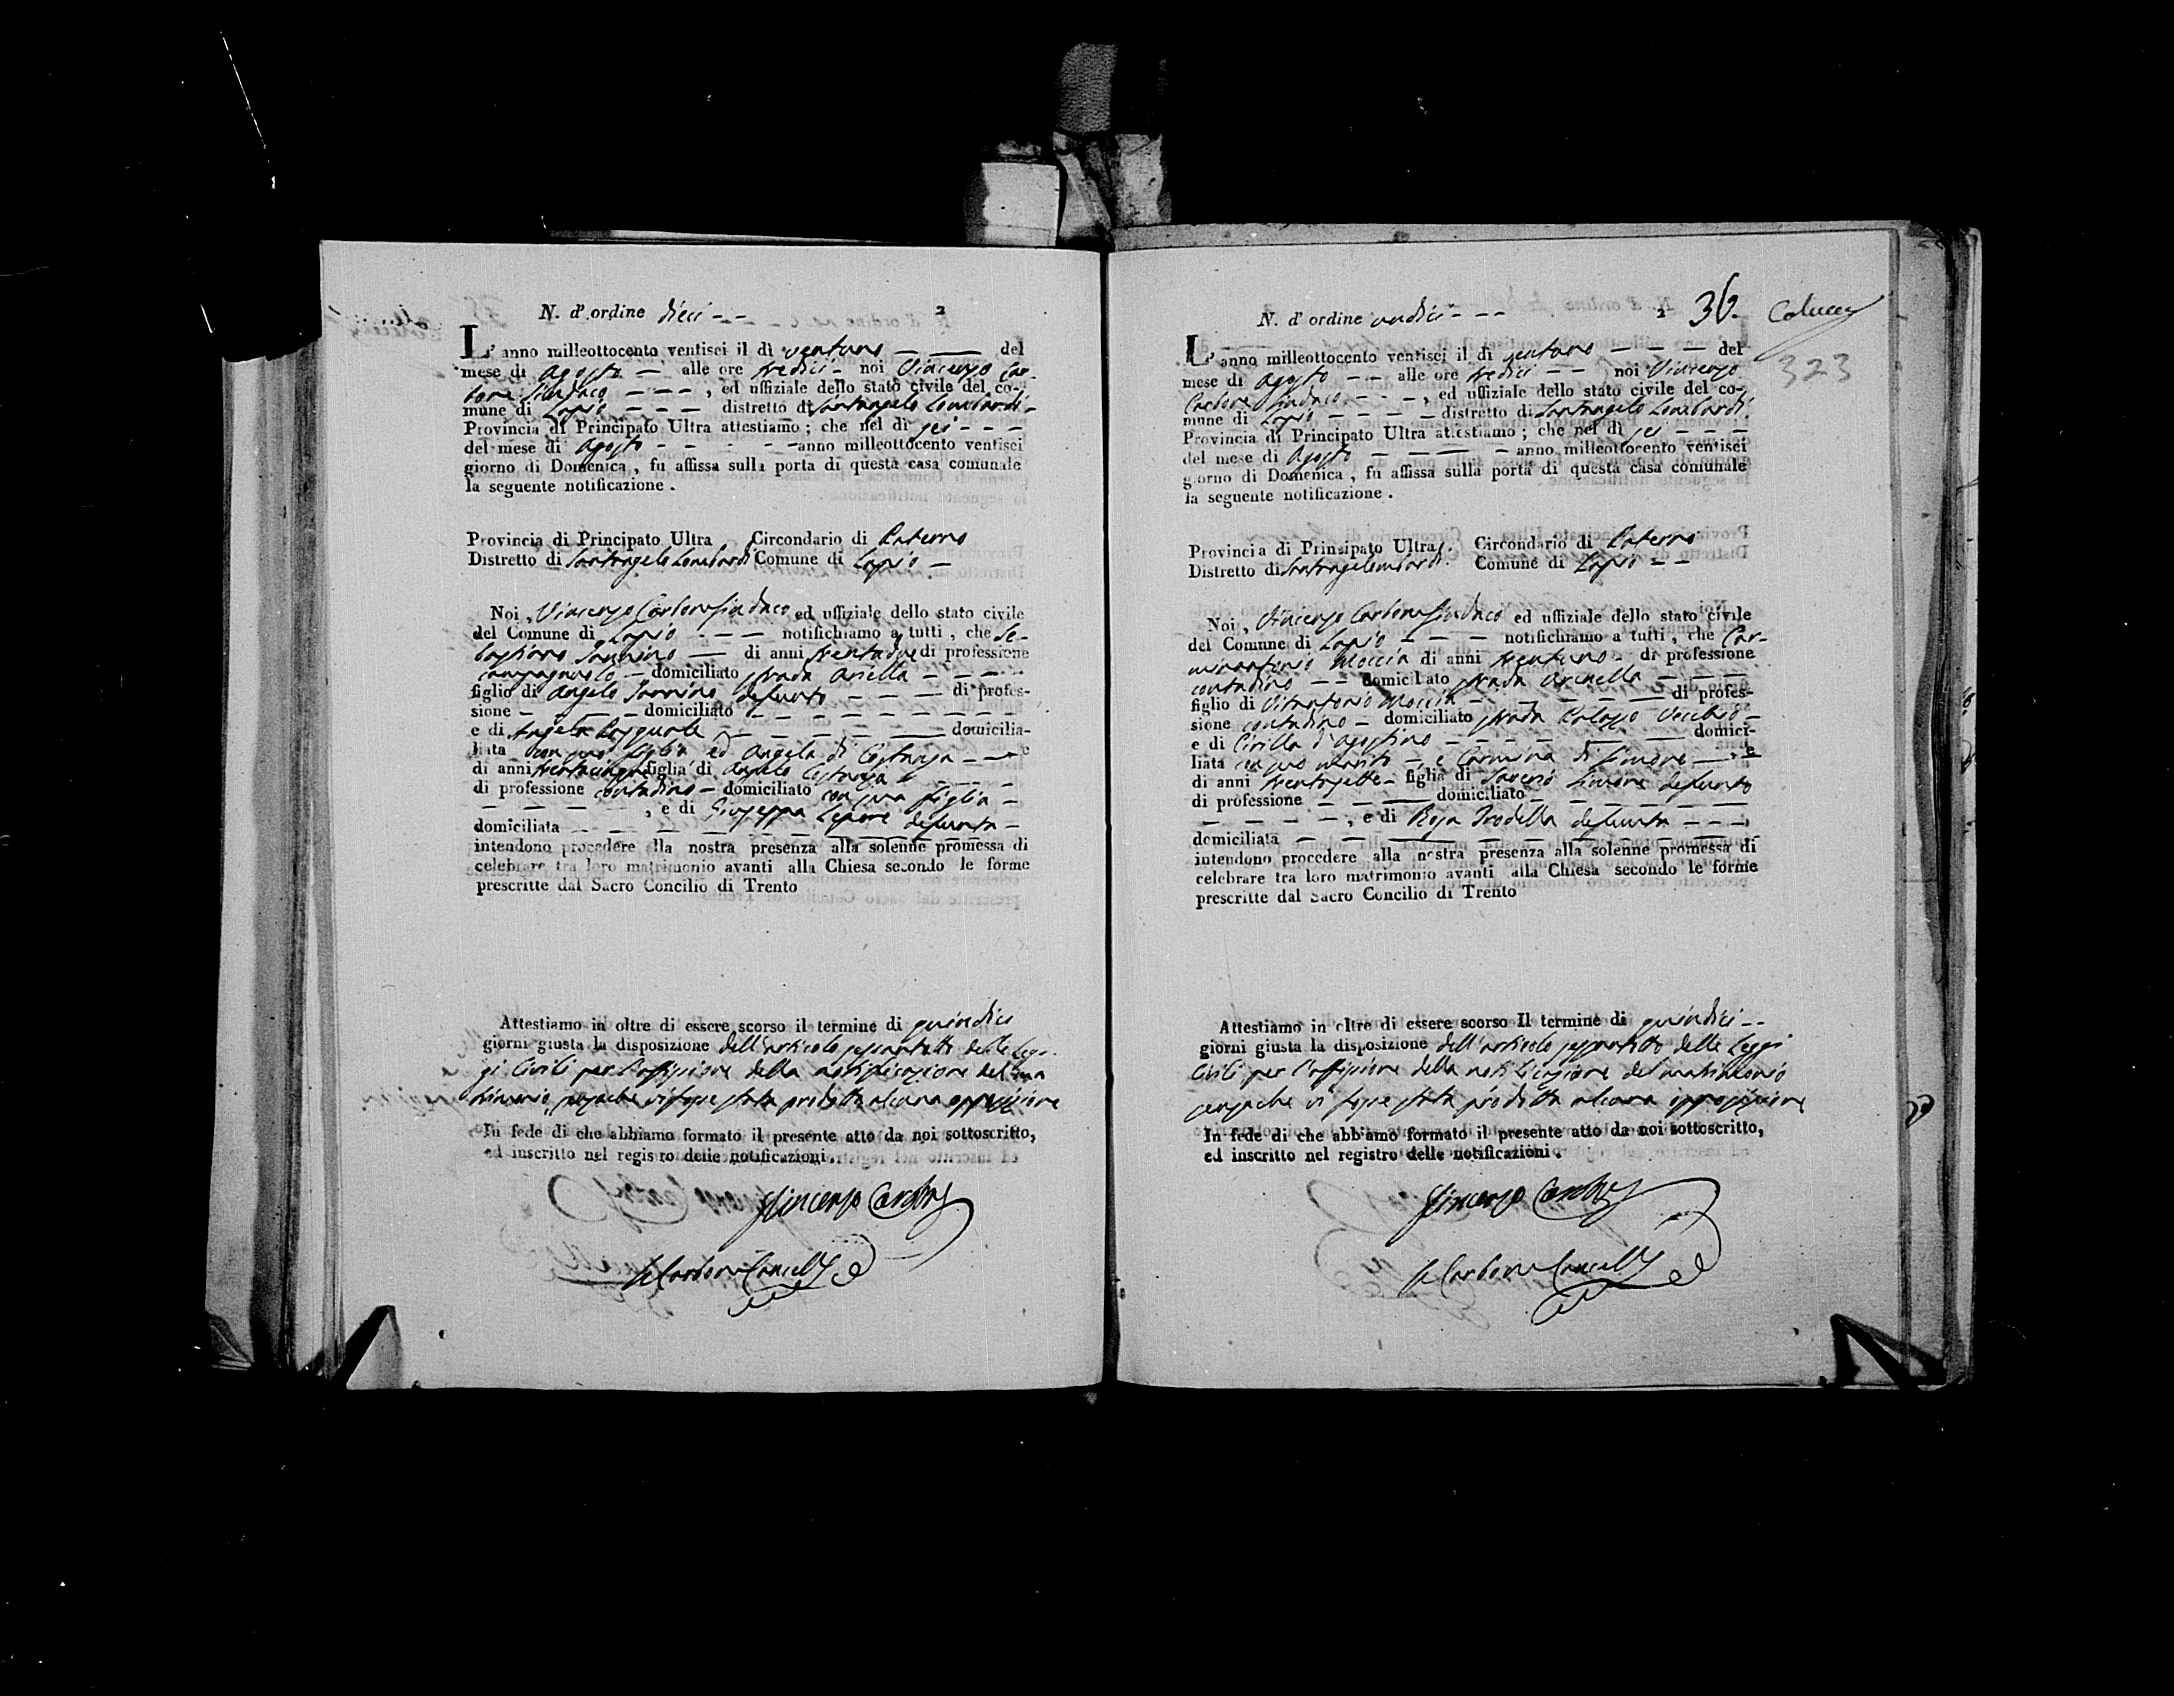 N. d'ordine dieci - - 2
L'anno milleottocento ventisei il dì ventuno — — del
mese di Agosto — alle ore tredici - noi Vincenzo Car-
bone Sindaco - - - , ed uffiziale dello stato civile del co-
mune di Lapio - - - distretto di Santangelo Lombardi -
Provincia di Principato Ultra attestiamo ; che nel dì sei - - -
del mese di Agosto - - - - - anno milleottocento ventisei
giorno di Domenica , fu affissa sulla porta di questa casa comunale
la seguente notificazione .
Provincia di Principato Ultra , Circondario di Paterno
Distretto di Santangelo Lombardi Comune di Lapio —
Noi , Vincenzo Carbone Sindaco ed uffiziale dello stato civile
del Comune di Lapio - - — notifichiamo a tutti , che Se-
bastiano Iannino — di anni trentadue di professione
campagnuolo — domiciliato strada Ariella - - - -
figlio di Angelo Iannino defunto - - — di profes-
sione - - - domiciliato - - - - - - - -
e di Angela Pasquale - - - - — domicilia-
liata con suo figlio ed Angela di Costanza - - e
di anni trentacinque figlia di Angelo Costanza - - -
di professione contadino - domiciliato con sua figlia -
- - - - , e di Giuseppa Lepore defunta -
domiciliata - - - - - - - -
intendono procedere alla nostra presenza alla solenne promessa di
celebrare tra loro matrimonio avanti alla Chiesa secondo le forme
prescritte dal Sacro Concilio di Trento
Attestiamo in oltre di essere scorso il termine di quindici
giorni giusta la disposizione dell'articolo sessantotto delle Leg-
gi Civili per l'affissione della notificazione del ma
trimonio, senzache vi fosse stata prodotta alcuna opposizione
In fede di che abbiamo formato il presente atto da noi sottoscritto,
ed inscritto nel registro delle notificazioni .
Vincenzo Carbone
Carbone Cancell
N. d'ordine undici - - - 2 36. Colucci
323
L'anno milleottocento ventisei il dì ventuno - - - del
mese di Agosto - - alle ore tredici - - noi Vincenzo
Carbone Sindaco - - - , ed uffiziale dello stato civile del co-
mune di Lapio - - - - distretto di Santangelo Lombardi
Provincia di Principato Ultra attestiamo ; che nel dì sei - - -
del mese di Agosto - - - - anno milleottocento ventisei
giorno di Domenica , fu affissa sulla porta di questa casa comunale
la seguente notificazione .
Provincia di Principato Ultra . Circondario di Paterno
Distretto di Santangelombardi Comune di Lapio - -
Noi , Vincenzo Carbone Sindaco ed uffiziale dello stato civile
del Comune di Lapio - - - notifichiamo a tutti , che Car-
minantonio Moccia di anni trentuno - di professione
contadino - - domiciliato strada Arenella - - -
figlio di Vitantonio Moccia - - - - di profes-
sione contadino - domiciliato strada Palazzo Vecchio -
e di Cirilla d'Agostino - - - - - domici-
liata con suo marito -, e Carmina di Simone - - , e
di anni trentasette - figlia di Saverio Simone defunto
di professione - - - domiciliato - - - - -
- - - - -, e di Rosa Trodella defunta - - -,
domiciliata - - - - - - -
intendono procedere alla nostra presenza alla solenne promessa di
celebrare tra loro matrimonio avanti alla Chiesa secondo le forme
prescritte dal Sacro Concilio di Trento
Attestiamo in oltre di essere scorso Il termine di quindici - -
giorni giusta la disposizione dell'articolo sessantotto delle Leggi
Civili per l'affissione della notificazione del matrimonio
senzache vi fosse stata prodotta alcuna opposizione
In fede di che abbiamo formato il presente atto da noi sottoscritto,
ed inscritto nel registro delle notificazioni .
Vincenzo Carbone
Carbone Cancell